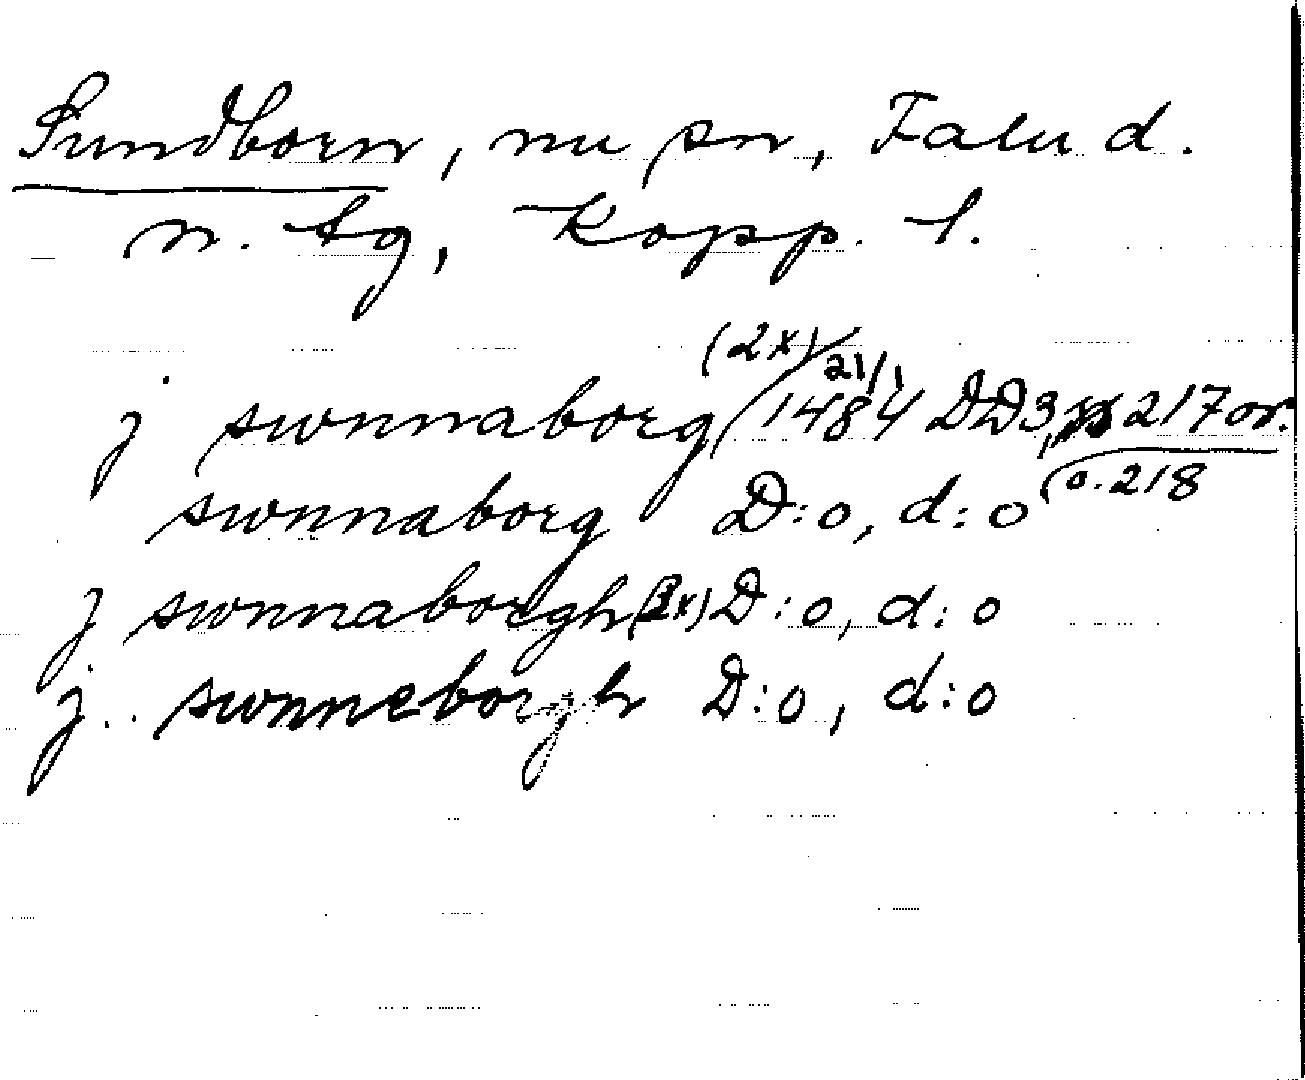 Sundborn, nu sn, Falu d.
n. tg, Kopp. l.
(2x) 21/1
j swnnaborg 1484 DD3, 217 or.
o. 218
swnnaborg D:o, d:o
j swnnaborgh (2x) D:o, d:o
j swnneborgh D:o, d:o